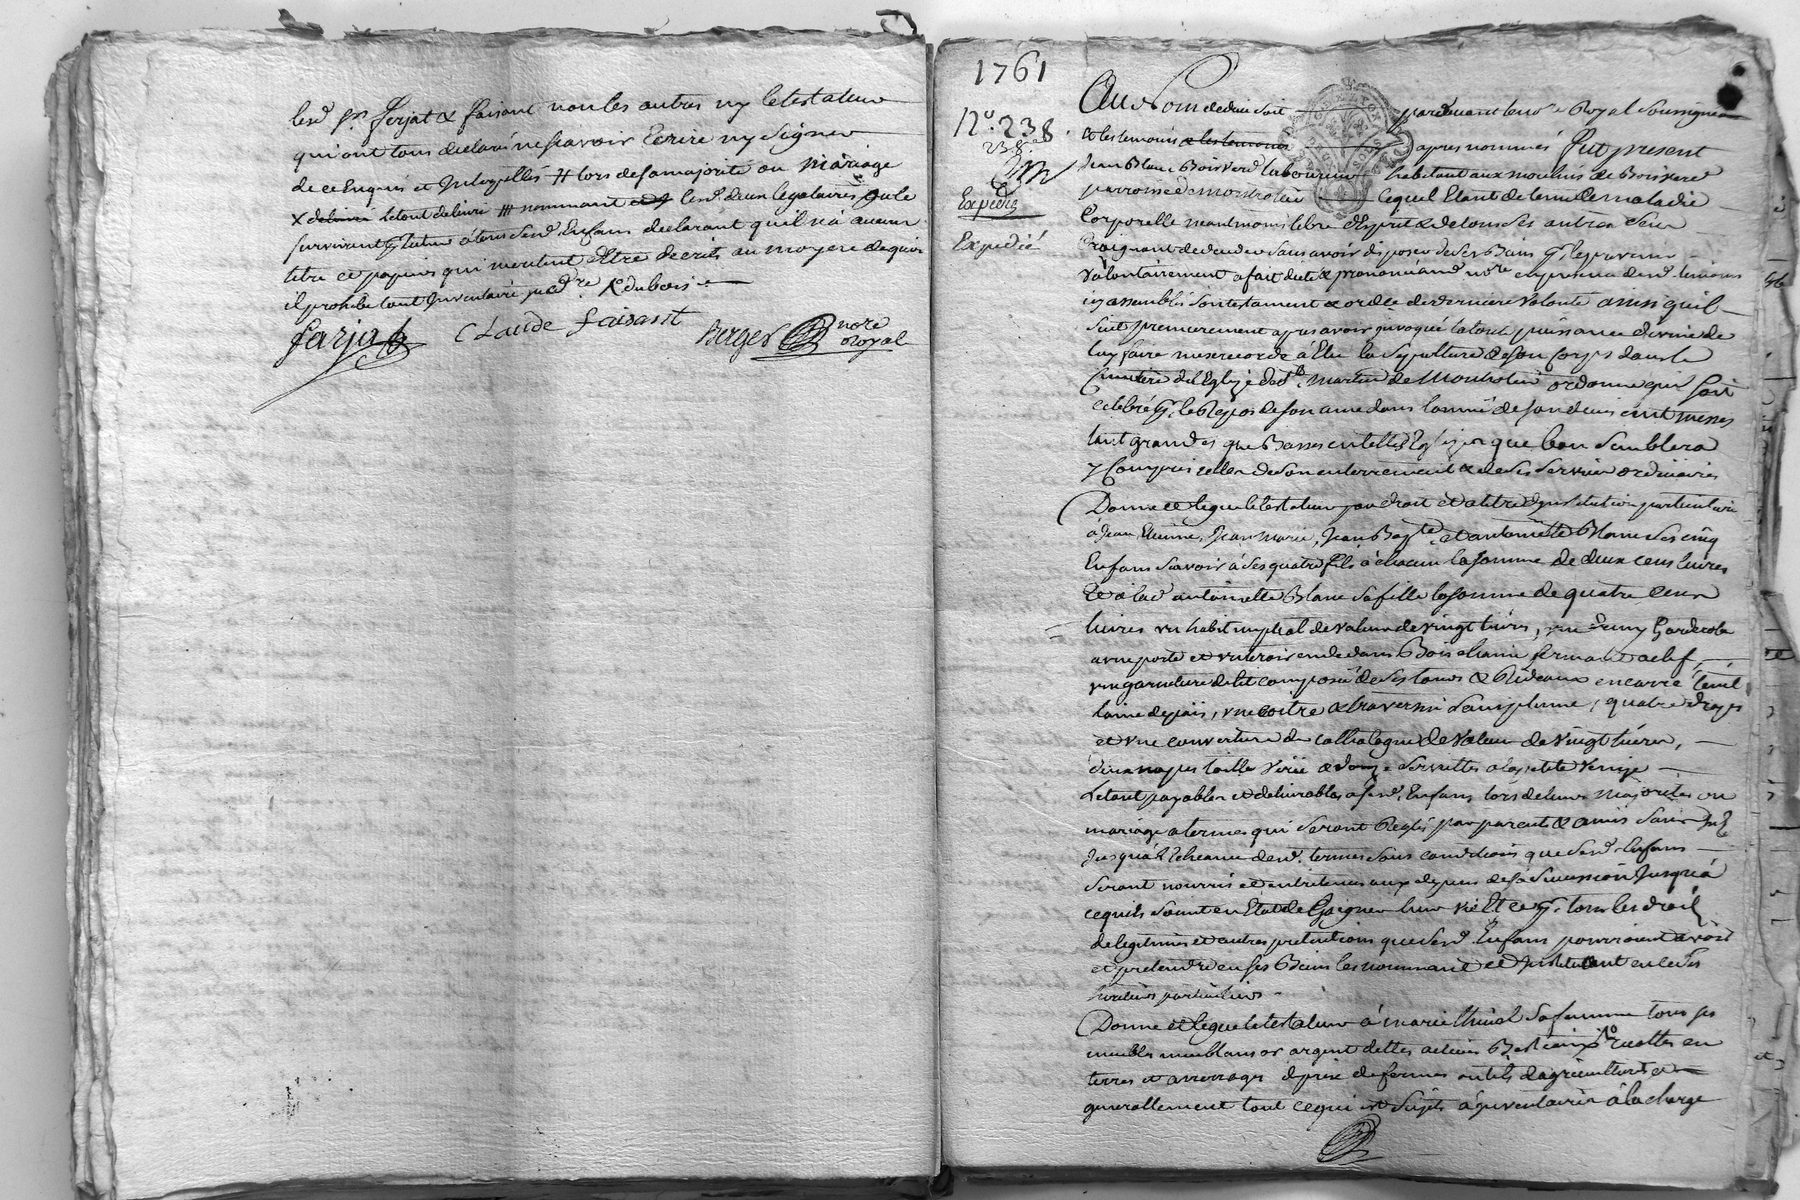 lesd. Srs. farjat & faisant non les autres ny le testateur
qui ont tous declaré ne scavoir Ecrire ny Signer
de ce Enquis et Interpellés # lors de sa majorité ou mariage
X le tout delivré # nommant lesd. deux legataires
survivant tuteur à tous sesd. Enfans declarant qu'il n'a aucun
titre ce papiers qui meritent d'Etre decrits au moyen de quoi
il prohibe tout Inventaire judre.
farjat Claude faisant Berger nore
Royal
1761
No. 238.
23 8bre
Expedié
Expedié
Au Nom de dieu soit pardevant le nore Royal Soussigné
et les temoins apres nommés fut present
Jean Blanc Boisverd laboureur habitant aux moulins de Boisverd
parroisse de montrotier lequel Etant detenu de maladie
Corporelle neantmoins libre d'Esprit & de tous ses autres sens
Craignant de deceder sans avoir disposé de ses Biens
Volontairement a fait dicté & prononcé aud. nore en presence desd. temoins
icy assemblés son testament & ordce. de derniere volonté ainsi quil
suit premierement apres avoir invoqué la toute puissance divine de
luy faire misericorde à Elu la sepulture de son Corps dans le
Cimetière de l'Eglise de St. martin de Montrotier ordonne quil soit
celebré pr. le Repos de son ame dans l'année de son deces cent messes
tant grandes que Basses en telles Eglises que bon semblera
y Compris celles de son enterrement & de ses services ordinaires
Donne et legue le testateur par droit et a titre d'institution particuliere
à Jean, Etienne, Jean Marie, Jean Bapte. et antoinette Blanc ses cinq
Enfans scavoir à ses quatre fils à chacun la somme de deux cens livres
Et à lad. antoinette Blanc sa fille la somme de quatre Cens
livres un habit nuptial de valeur de vingt livres, une Garderobe
a une porte et un tiroir en dedans Bois chaine fermante a clef,
une garniture de lit composée de ses tours & Rideaux en carré
laine du païs, une coitre & traversin sans plume, quatre draps
et une couverture de cathalogne de valeur de vingt livres,
deux napes & douze Serviettes a la petite Venize
le tout payables et delivrables a sesd. Enfans lors de leurs majorités ou
mariage a termes qui seront Reglés par parents & amis sans Int.
Jusqu'à l'Echeance desd. termes sous conditions que sesd. Enfans
seront nourris et entretenus aux depens de sa succession Jusqu'à
ce quils soient en Etat de Gagner leur vie Et ce pr. tous les droits
de legitimes et autres pretentions que sesd. Enfans pourroient avoir
et pretendre en ses Biens les nommant et Instituant en ce ses
heritiers particuliers
Donne et legue le testateur à marie sa femme tous ses
meubles meublans or argent dettes actives Bestiaux Recoltes en
terres et arrerages de prix de fermes outils d'agriculture et
generallement tout ce qui est sujet à Inventaire à la charge